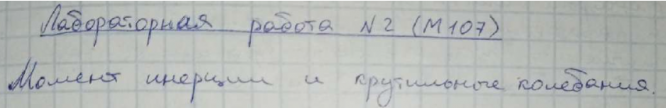 Лабораторная работа №2 (М107)
Момент инерции и крутильные колебания.